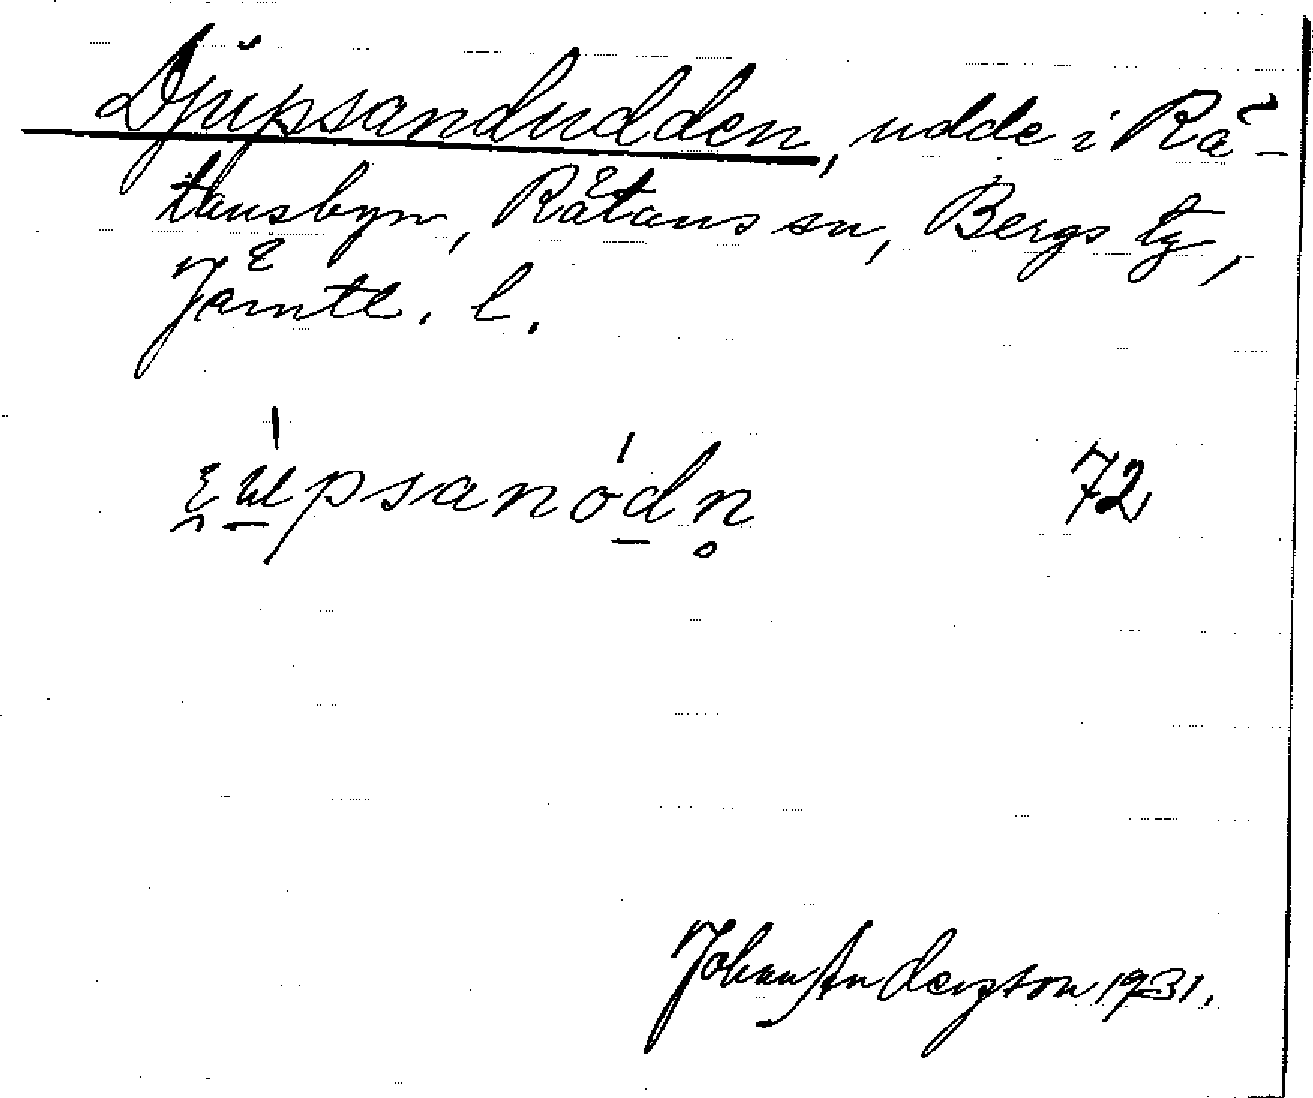 Djupsandudden, udde i Rä-
tansbyn, Rätans sn, Bergs tg,
Jämtl. l.
72
Johan Anderzon 1931.